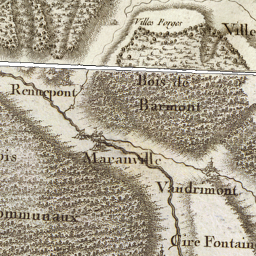 Villes Forges
Ville
Bois de
Barmont
Rennepont
Maranville
Vaudrimont
ommunaux
Cire Fontain